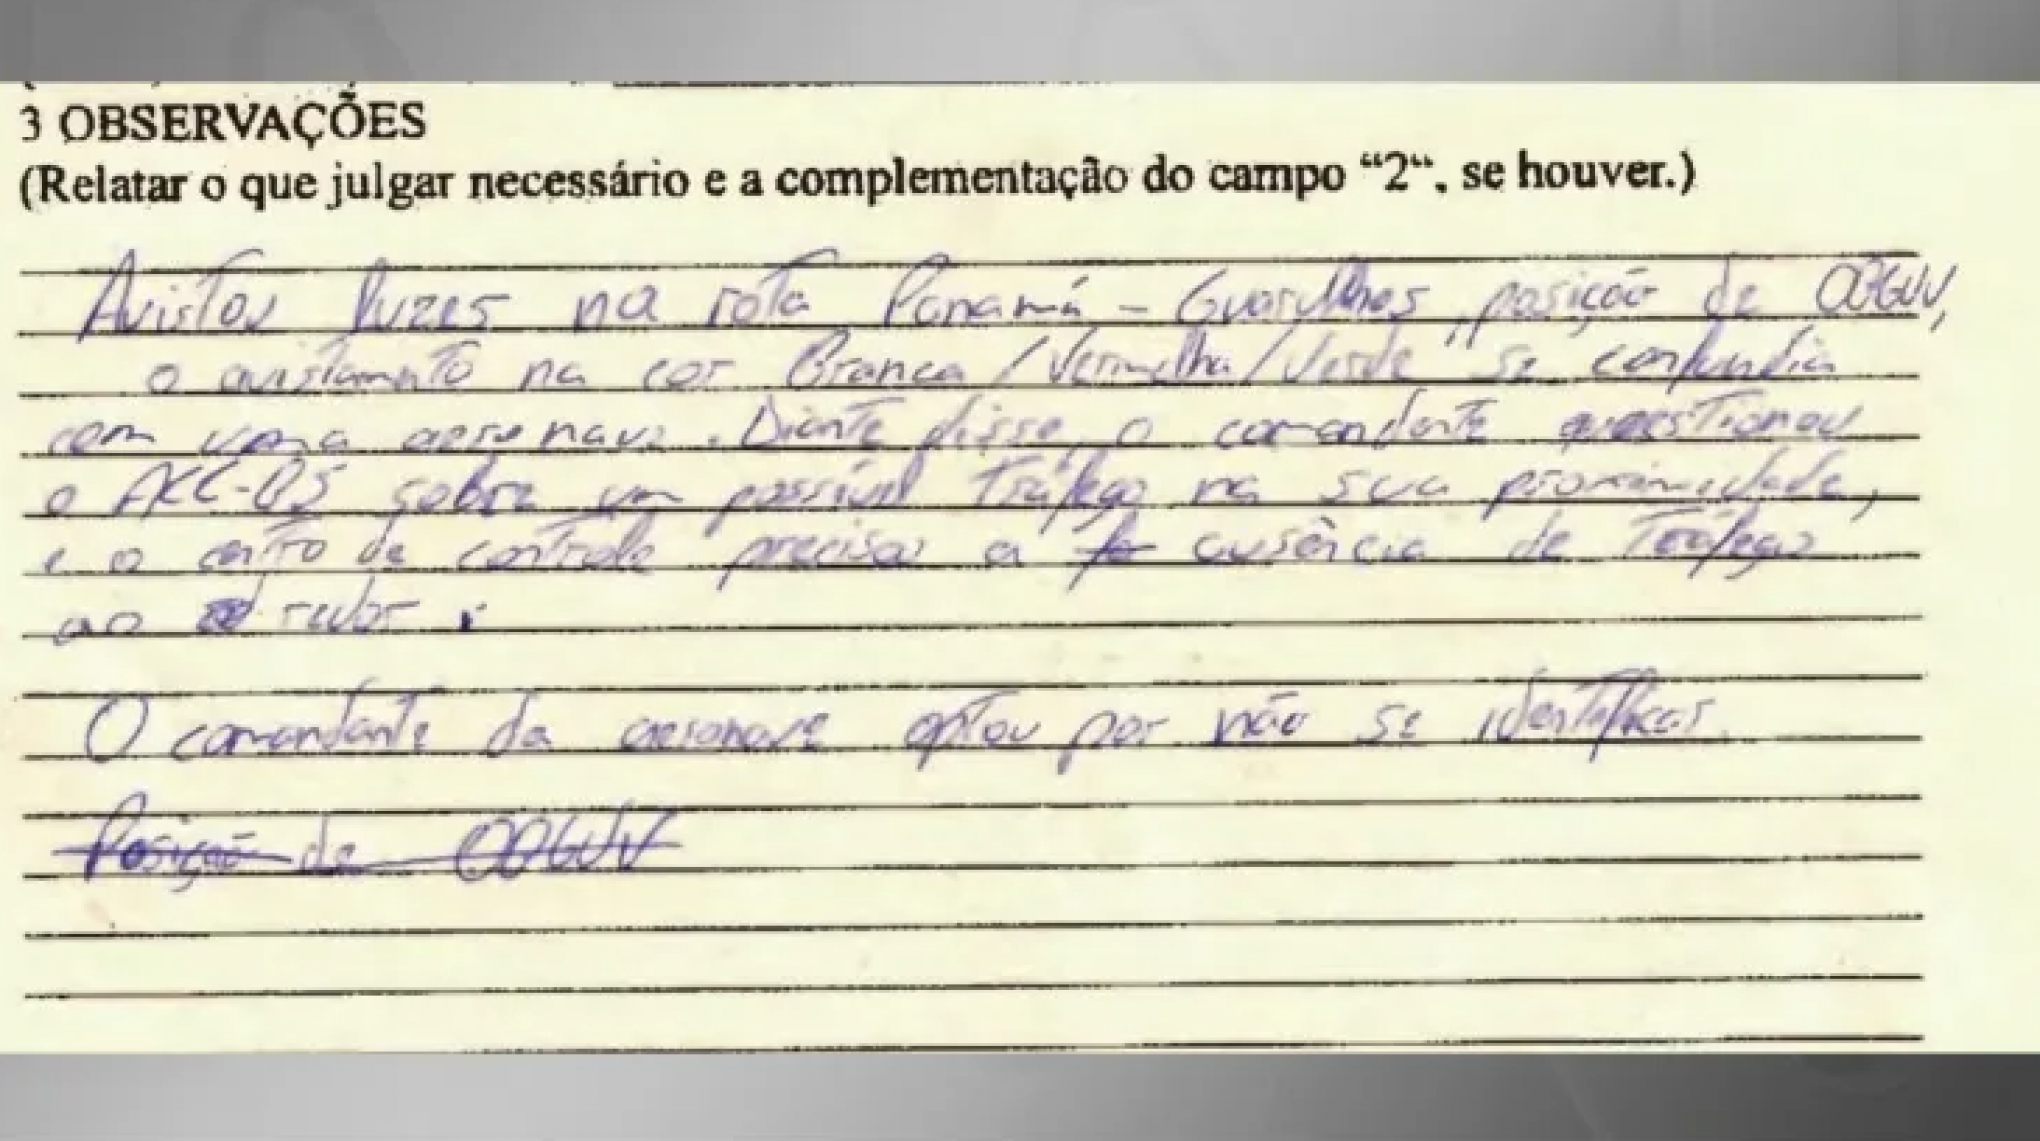 3 OBSERVAÇÕES
(Relatar o que julgar necessário e a complementação do campo “2“, se houver.)
Avistou luzes na rota Panamá - Guarulhos, posição de
o avistamento na cor Branca/Vermelha/Verde se confundia
com uma aeronave. Diante disso, o comandante questionou
o ACC-BS sobre um possível tráfego na sua proximidade,
e o centro de controle precisou a ausência de tráfego
ao redor.
O comandante da aeronave optou por não se identificar.
Posição de